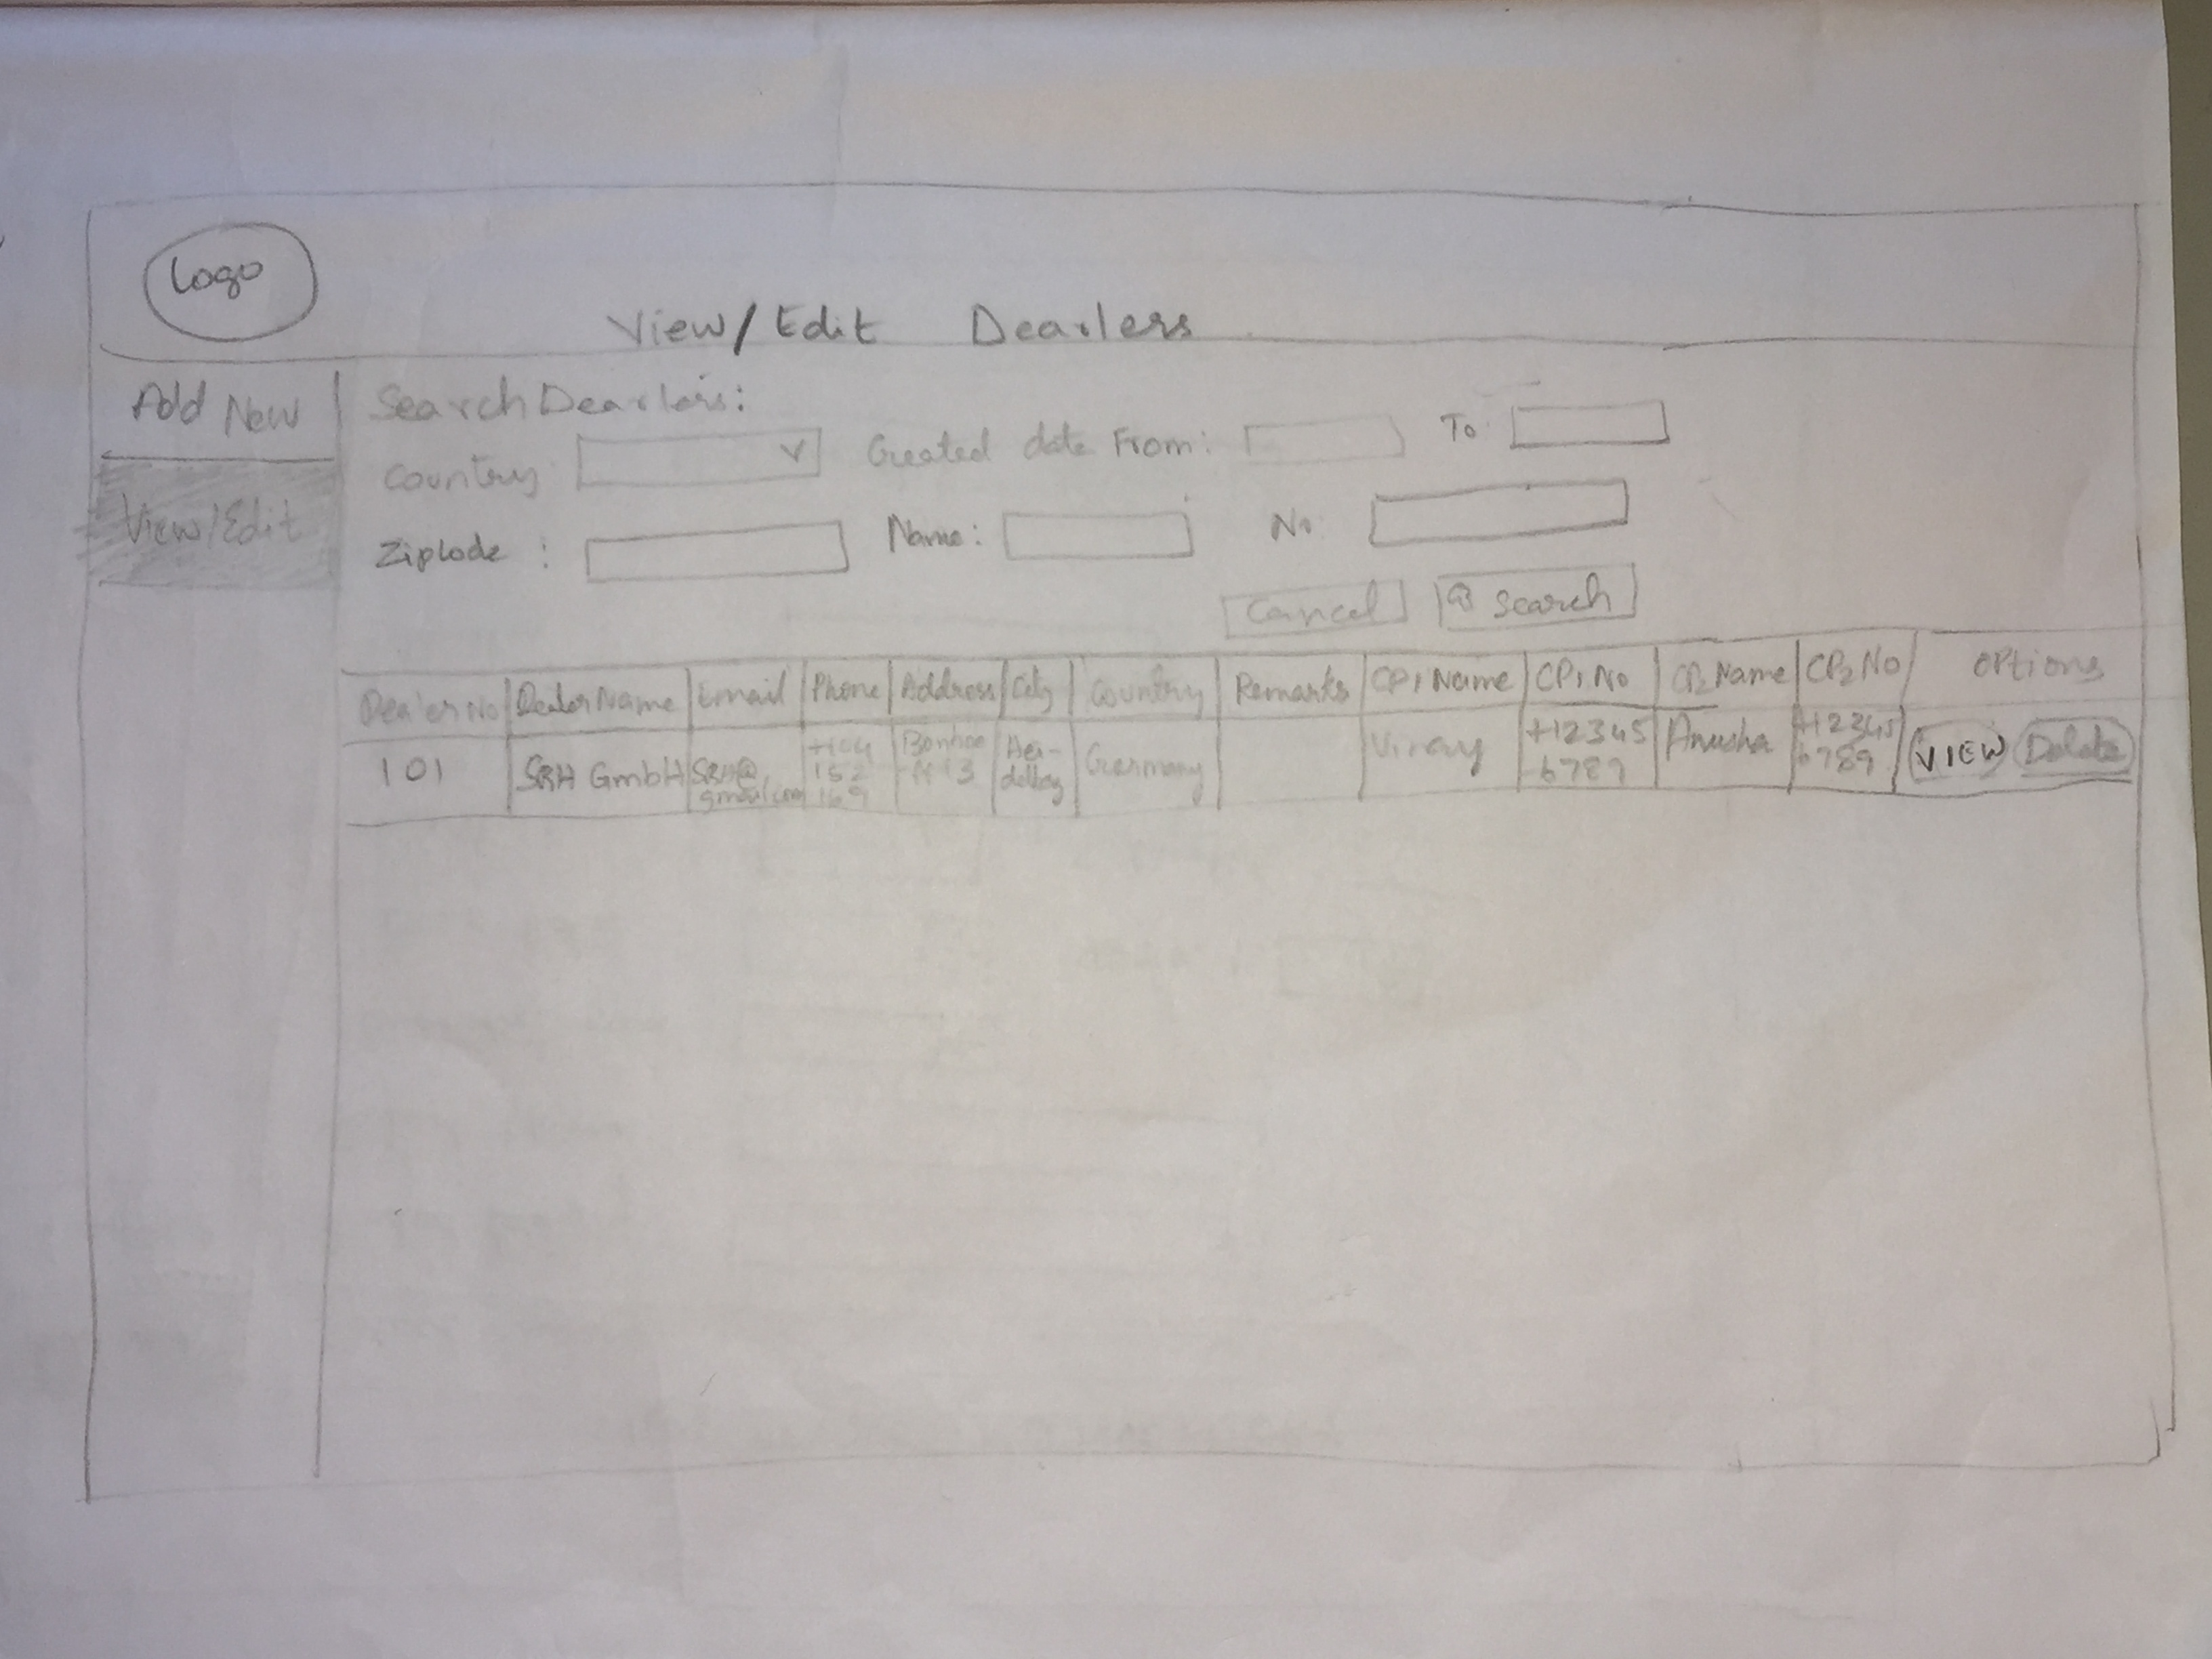 Logo
View/Edit Dearlers
Add New
View/Edit
Search Dearlers:
Country
Created date From:
To
Ziplode :
Name:
No
Cancel
Search
Dealer No Dealer Name Email Phone Address City Country Remarks CP1 Name CP1 No CP2 Name CP2 No OPtions
101 SRH GmbH SRH@ gmail.com 152 169 13 Germany +12345 6789 Anusha +12345 6789 VIEW Delete